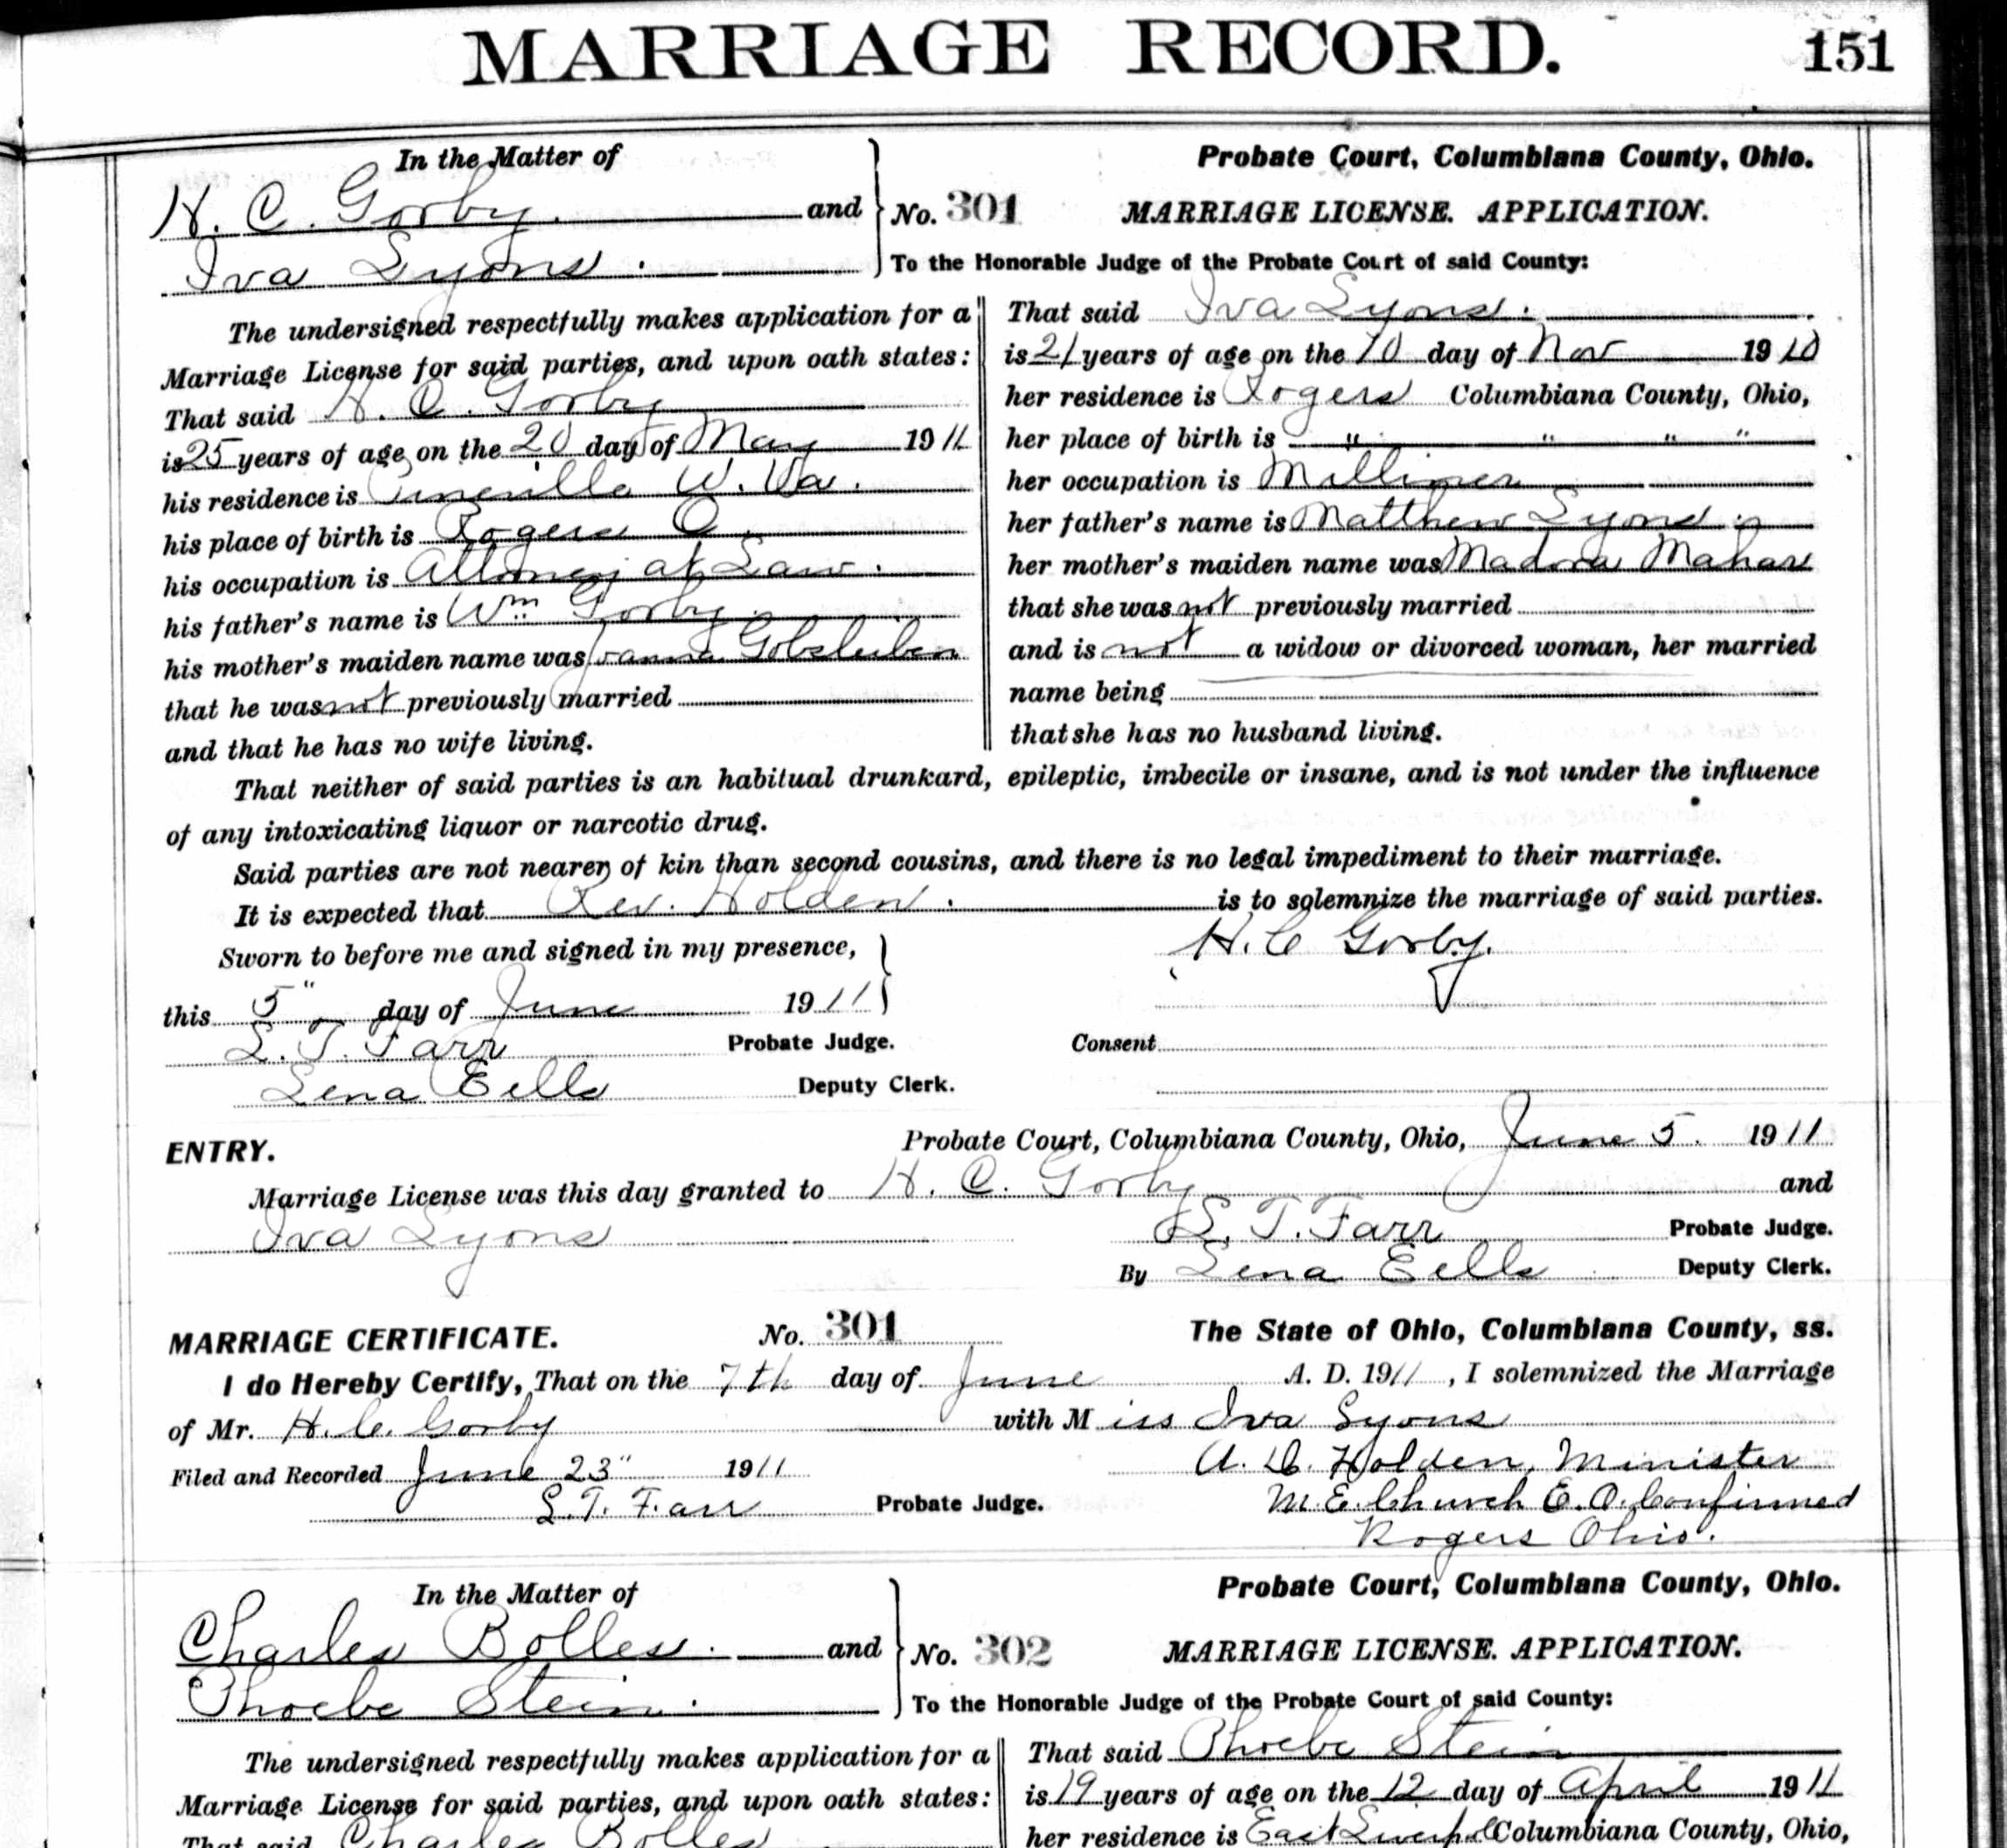 MARRIAGE RECORD. 151
In the Matter of
H. C. Gorby. and
Iva Lyons.
No. 301
Probate Court, Columbiana County, Ohio.
MARRIAGE LICENSE. APPLICATION.
To the Honorable Judge of the Probate Court of said County:
The undersigned respectfully makes application for a
Marriage License for said parties, and upon oath states:
That said H. C. Gorby
is 25 years of age on the 20 day of May 1911
his residence is Pineville W. Va.
his place of birth is Rogers O.
his occupation is Attorney at Law.
his father's name is Wm Gorby.
his mother's maiden name was
that he was not previously married
and that he has no wife living.
That said Iva Lyons.
is 21 years of age on the 10 day of Nov 1910
her residence is Rogers Columbiana County, Ohio,
her place of birth is " " " "
her occupation is Milliner
her father's name is Matthew Lyons
her mother's maiden name was Madora
that she was not previously married
and is not a widow or divorced woman, her married
name being
that she has no husband living.
That neither of said parties is an habitual drunkard, epileptic, imbecile or insane, and is not under the influence
of any intoxicating liquor or narcotic drug.
Said parties are not nearer of kin than second cousins, and there is no legal impediment to their marriage.
It is expected that Rev. Holden. is to solemnize the marriage of said parties.
Sworn to before me and signed in my presence,
H. C Gorby.
this 5" day of June 1911
L. T. Farr Probate Judge.
Consent
Lena Eells Deputy Clerk.
ENTRY.
Probate Court, Columbiana County, Ohio, June 5. 1911
Marriage License was this day granted to H. C. Gorby and
Iva Lyons
L. T. Farr Probate Judge.
By Lena Eells Deputy Clerk.
MARRIAGE CERTIFICATE. No. 301 The State of Ohio, Columbiana County, ss.
I do Hereby Certify, That on the 7th day of June A. D. 1911, I solemnized the Marriage
of Mr. H. C. Gorby with Miss Iva Lyons
Filed and Recorded June 23" 1911
A. D. Holden, Minister
L. T. Farr Probate Judge.
M. E. Church E. O. Confirmed
Rogers Ohio.
In the Matter of
Charles Bolles. and
Phoebe Stein.
No. 302
Probate Court, Columbiana County, Ohio.
MARRIAGE LICENSE. APPLICATION.
To the Honorable Judge of the Probate Court of said County:
The undersigned respectfully makes application for a
Marriage License for said parties, and upon oath states:
That said Charles Bolles
That said Phoebe Stein
is 19 years of age on the 12 day of April 1911
her residence is East Liverpool Columbiana County, Ohio,